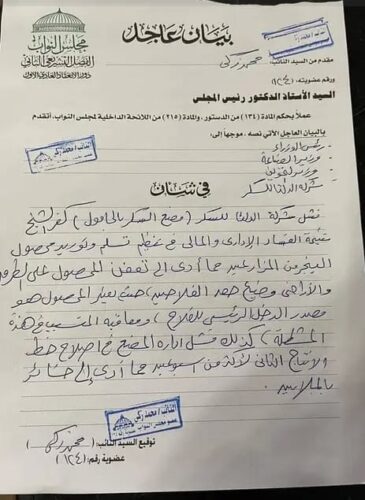 مجلس النواب
الفصل التشريعي الثاني
دور الانعقاد العادى الأول
بيان عاجل
مقدم من السيد النائب: محمد زكى
ورقم عضويته: ١٢٤
السيد الأستاذ الدكتور رئيس المجلس
عملاً بحكم المادة (١٣٤) من الدستور، والمادة (٢١٥) من اللائحة الداخلية لمجلس النواب، أتقدم
بالبيان العاجل الآتي نصه، موجهاً إلى:
- رئيس الوزراء
- وزير الصناعة
- وزير التموين
- شركة الدلتا للسكر
فى شأن
فشل شركة الدلتا للسكر (مصنع السكر بالحامول) كفر الشيخ
نتيجة الفساد الإدارى والمالى فى تنظيم تسلم وتوريد محصول
البنجر من المزارعين مما أدى إلى تعفن المحصول على الطرق
والأراضى وضياع جهد الفلاحين حيث يعتبر المحصول هو
مصدر الدخل الرئيسى للفلاح، ومعاقبة المتسبب فى هذة
المشكلة، كذلك فشل إدارة المصنع فى إصلاح خط
الإنتاج الثانى لأكثر من أسبوعين مما أدى إلى خسائر
بالملايين.
النائب / محمد زكى
عضو مجلس النواب
توقيع السيد النائب: محمد زكى
عضوية رقم: (١٢٤)